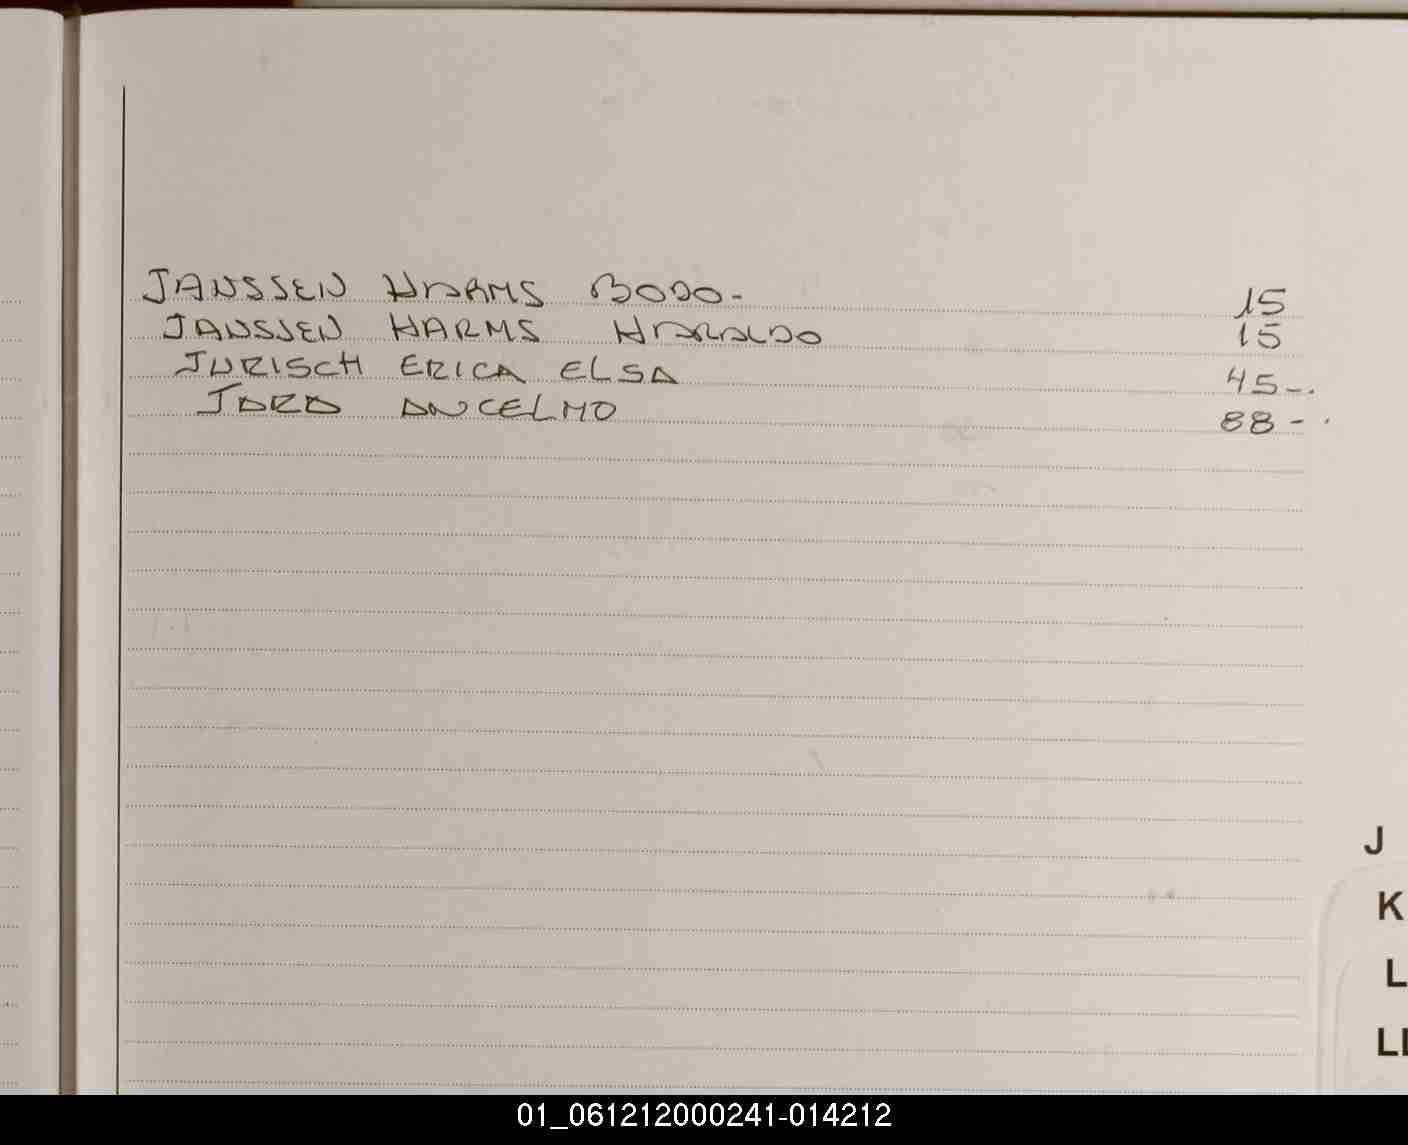 JANSSEN HARMS BODO- 15
JANSSEN HARMS HARALDO 15
JURISCH ERICA ELSA 45-.
JARA ANCELMO 88-.
J
K
L
01_061212000241-014212